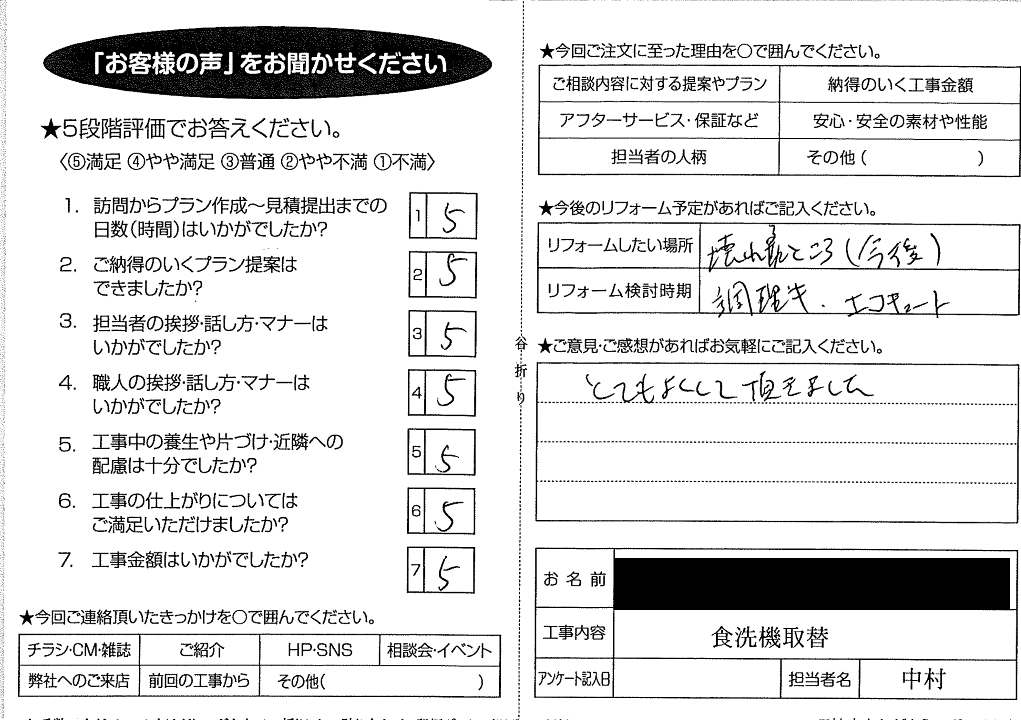 「お客様の声」をお聞かせください
★5段階評価でお答えください。
〈⑤満足 ④やや満足 ③普通 ②やや不満 ①不満〉
1. 訪問からプラン作成〜見積提出までの
日数(時間)はいかがでしたか?
1 5
2. ご納得のいくプラン提案は
できましたか?
2 5
3. 担当者の挨拶・話し方・マナーは
いかがでしたか?
3 5
4. 職人の挨拶・話し方・マナーは
いかがでしたか?
4 5
5. 工事中の養生や片づけ・近隣への
配慮は十分でしたか?
5 5
6. 工事の仕上がりについては
ご満足いただけましたか?
6 5
7. 工事金額はいかがでしたか?
7 5
★今回ご連絡頂いたきっかけを○で囲んでください。
チラシ・CM・雑誌 ご紹介 HP・SNS 相談会・イベント
弊社へのご来店 前回の工事から その他( )
谷折り
★今回ご注文に至った理由を○で囲んでください。
ご相談内容に対する提案やプラン 納得のいく工事金額
アフターサービス・保証など 安心・安全の素材や性能
担当者の人柄 その他( )
★今後のリフォーム予定があればご記入ください。
リフォームしたい場所 ところ(今後)
リフォーム検討時期 調理器、エコキュート
★ご意見・ご感想があればお気軽にご記入ください。
とてもよくして頂きました
お名前
工事内容 食洗機取替
アンケート記入日 担当者名 中村